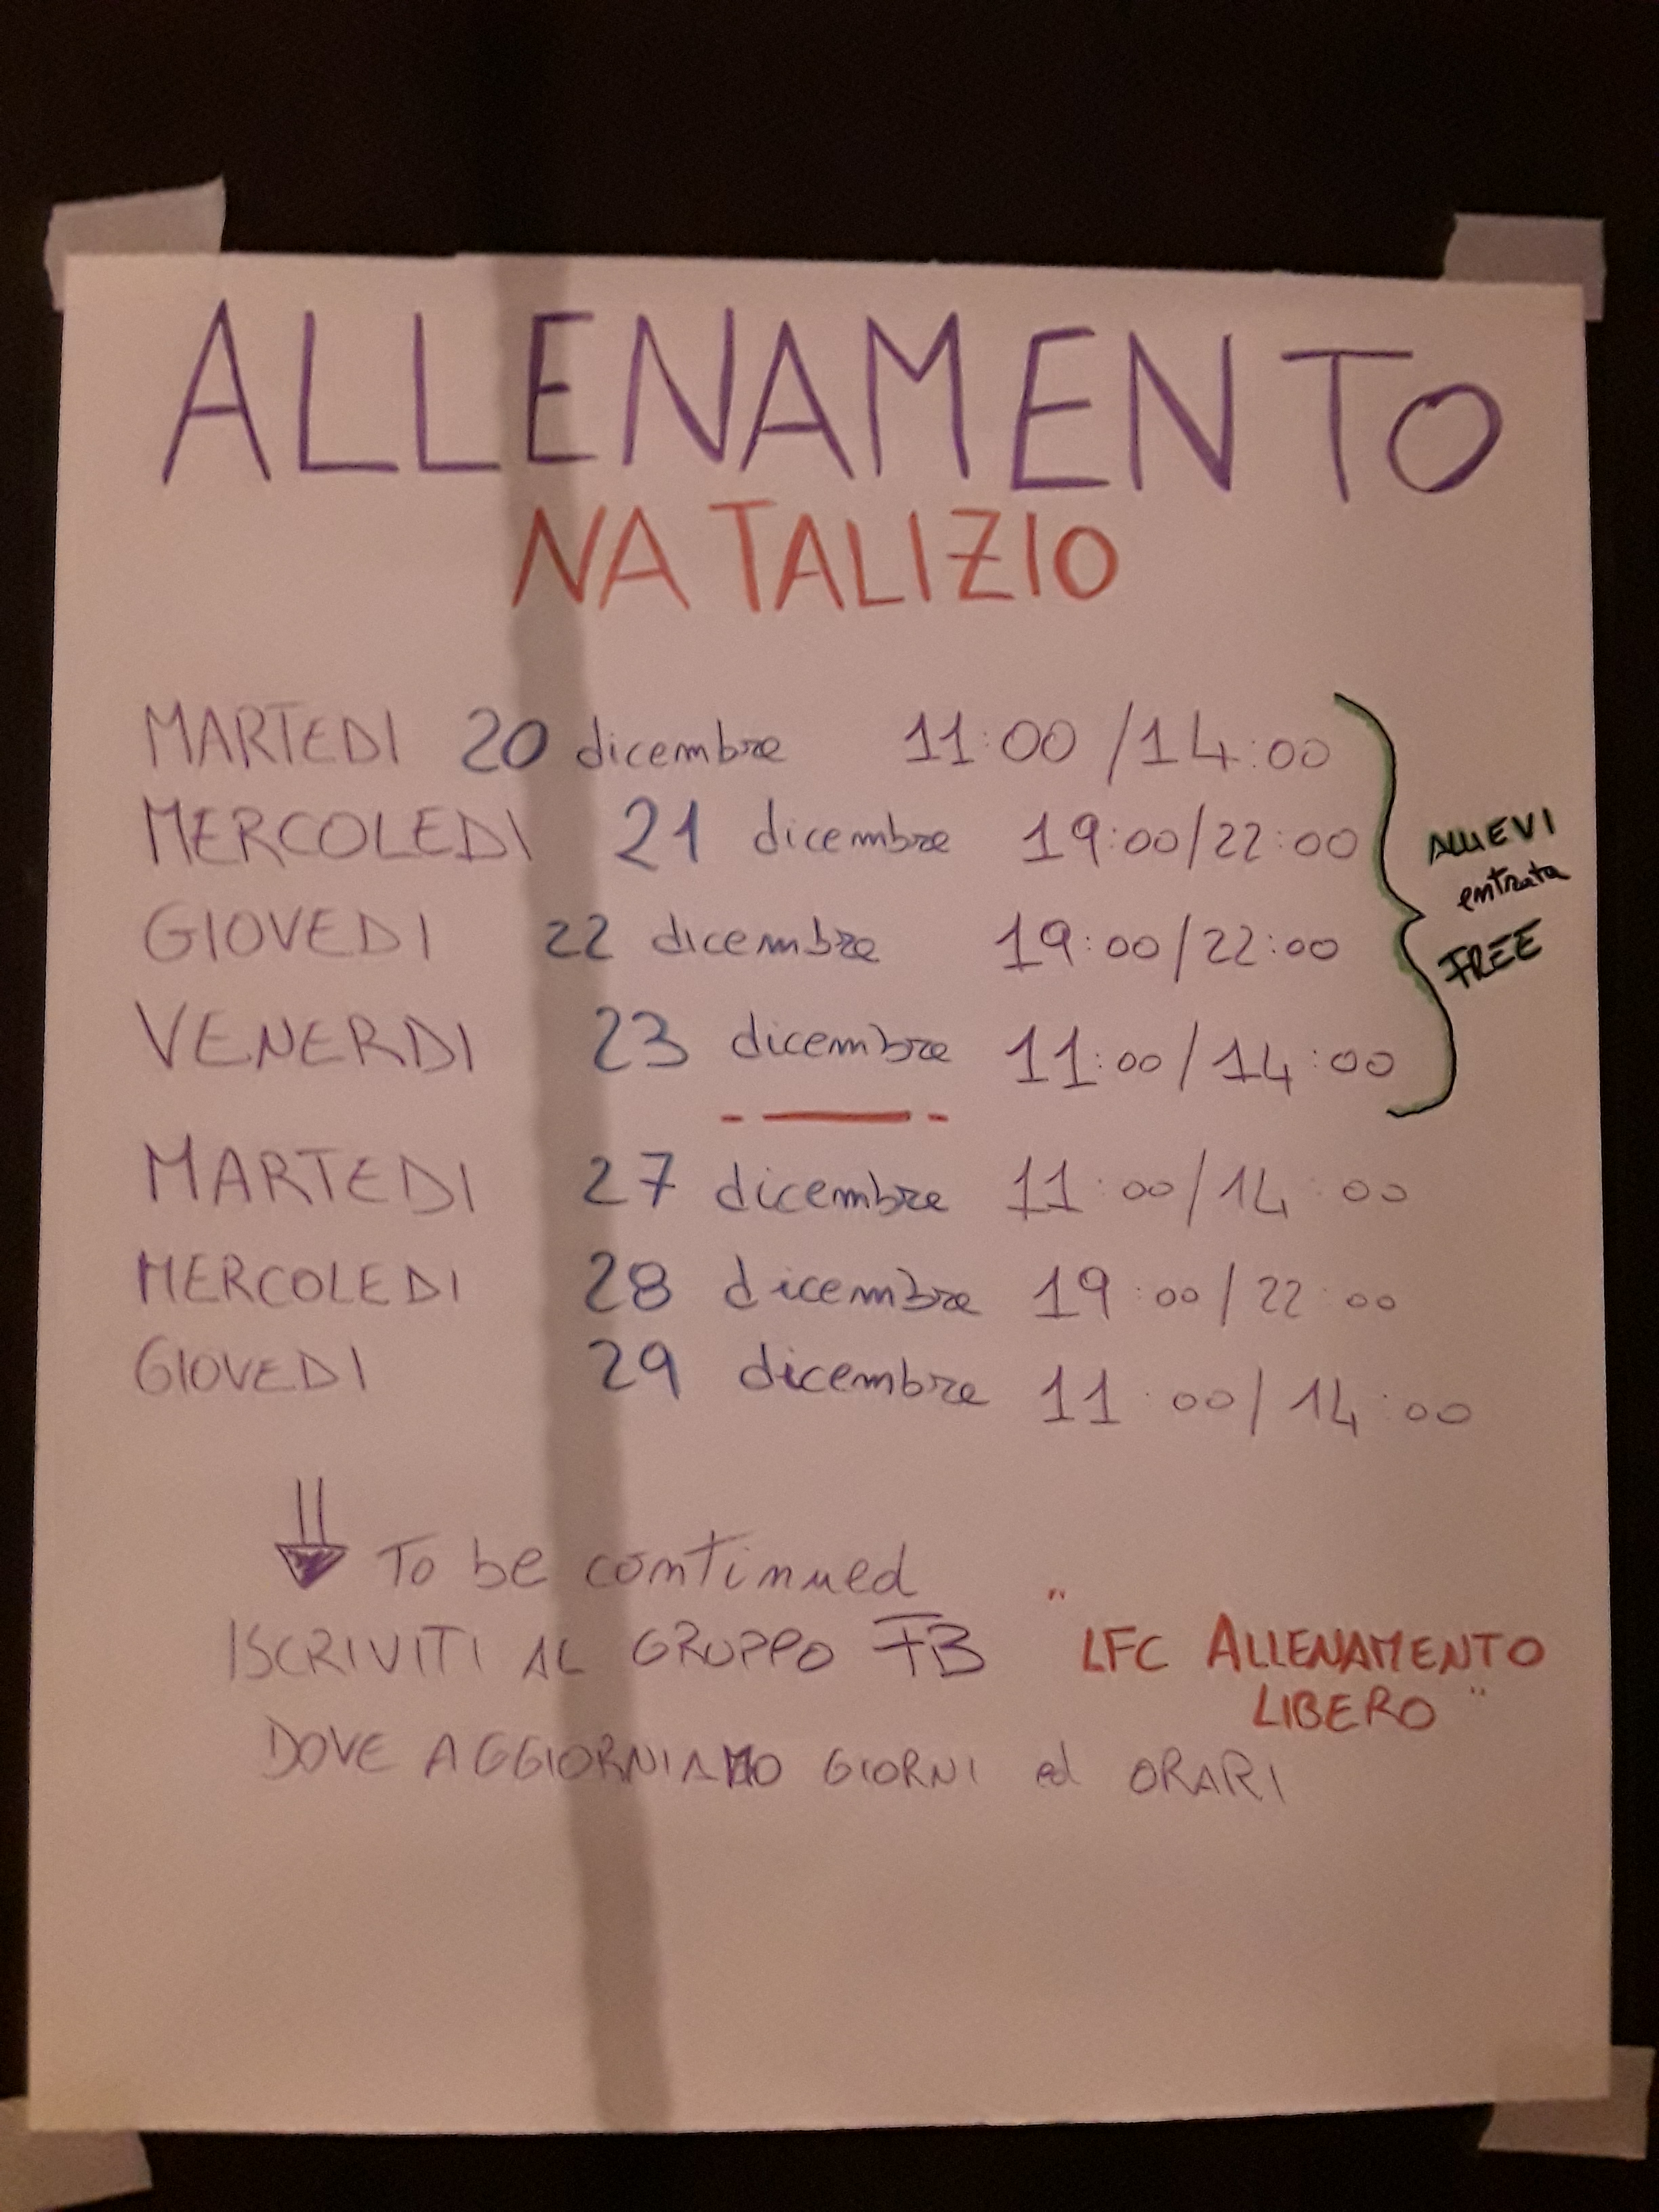 ALLENAMENTO
NATALIZIO
MARTEDI 20 dicembre 11:00 / 14:00
MERCOLEDI 21 dicembre 19:00/22:00
GIOVEDI 22 dicembre 19:00/22:00
VENERDI 23 dicembre 11:00 / 14:00
ALLIEVI
entrata
FREE
MARTEDI 27 dicembre 11:00/14:00
MERCOLEDI 28 dicembre 19:00/22:00
GIOVEDI 29 dicembre 11:00/14:00
To be continued
ISCRIVITI AL GRUPPO FB "LFC ALLENAMENTO
LIBERO"
DOVE AGGIORNIAMO GIORNI ed ORARI